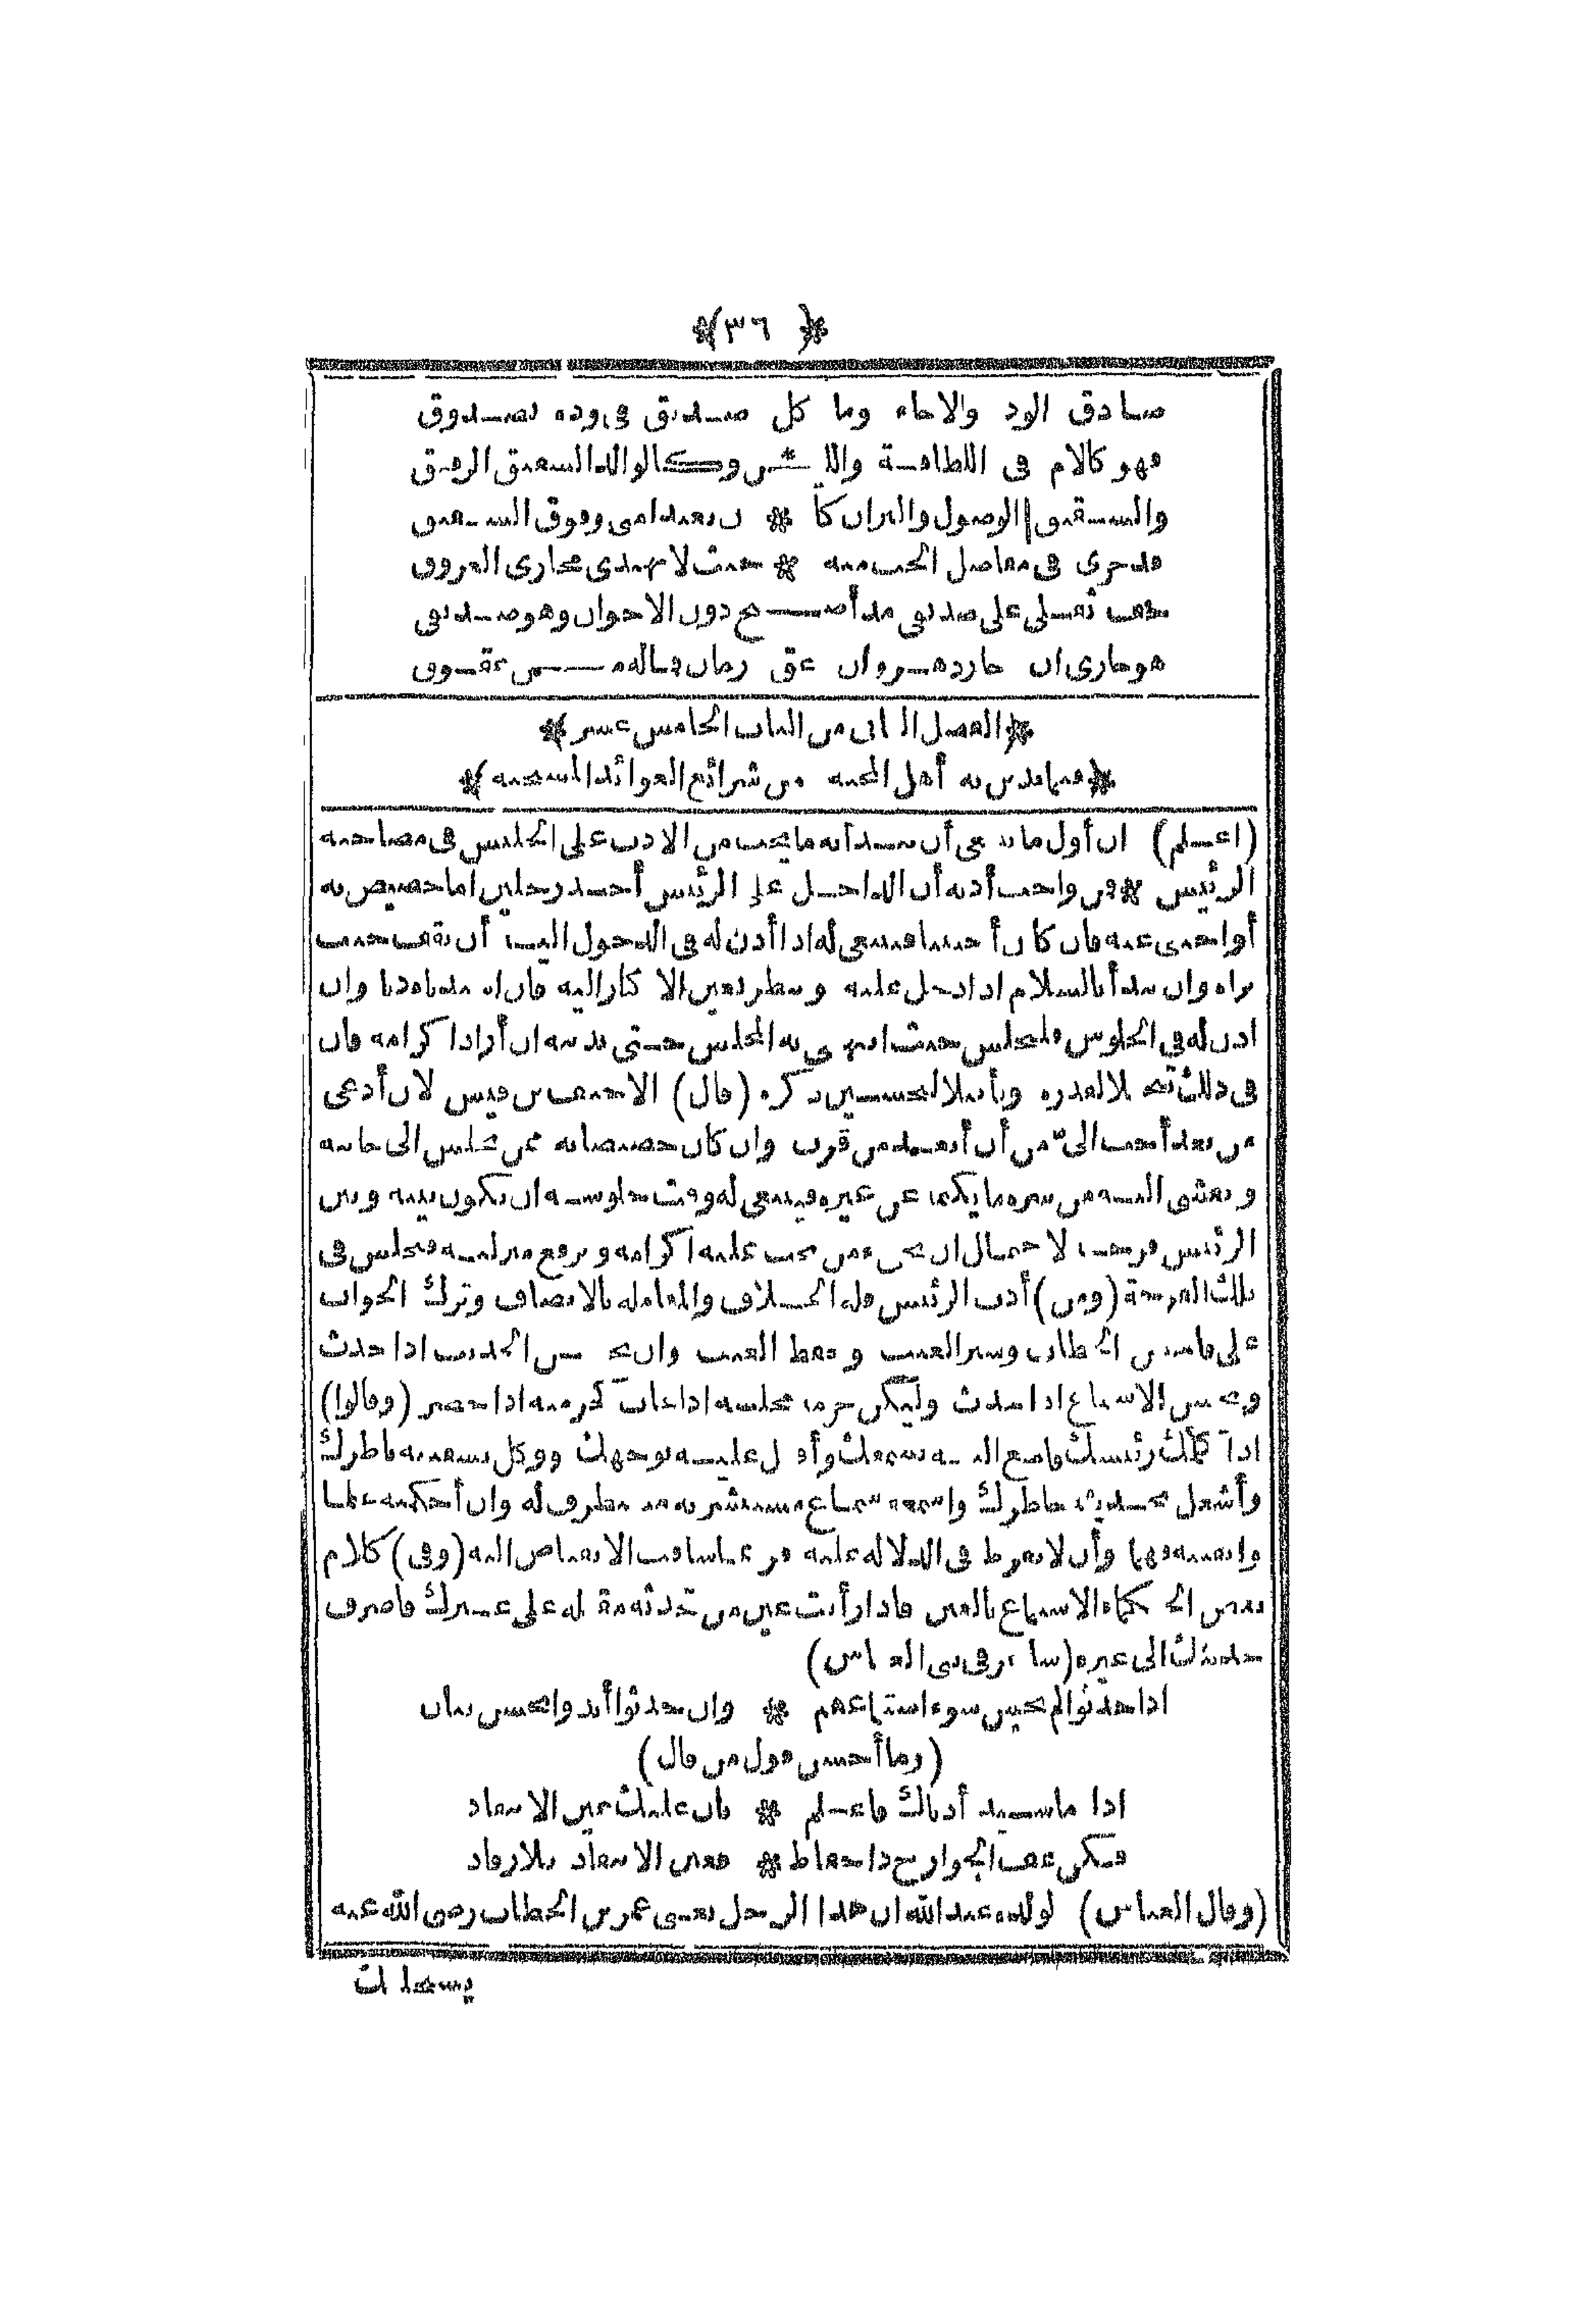 ﴿ ٣٦ ﴾
صادق الود والاخاء وما كل صديق في وده بصدوق
فهو كالام في اللطافة واللين وكالوالد الشفيق الرفيق
والشقيق الوصول والبران كا * ن بعيدا مني وفوق الشقيق
قد جرى في مفاصل الحب منه * حيث لا يهتدي مجاري العروق
خف ثقلي على صديقي مذ أصبح دون الاخوان وهو صديقي
هو جاري ان جار دهر وان عق زمان فماله من عقوق
﴿الفصل الثاني من الباب الخامس عشر﴾
﴿فيما يدين به أهل المحبة من شرائع العوائد المستحبة﴾
(اعلم) ان أول ما ينبغي أن نبدأ به ما يجب من الادب على الجليس في مصاحبة
الرئيس * فمن واجب أدبه أن الداخل على الرئيس أحد رجلين اما خصيص به
أو أجنبي عنه فان كان أجنبيا فينبغي له اذا أذن له في الدخول اليه أن يقف حيث
يراه وان يبدأ بالسلام اذا دخل عليه وينظر بعين الاكبار اليه فان استدناه دنا وان
اذن له في الجلوس فليجلس حيث انتهى به المجلس حتى يدنيه ان أراد اكرامه فان
في ذلك تجملا لقدره وتأميلا لتحسين ذكره (قال) الاحنف بن قيس لان أدعى
من بعد أحب الىّ من أن أبعد من قرب وان كان خصيصا به ممن يجلس الى جانبه
ويفشي اليه من سره ما يكتمه عن غيره فينبغي له وقت جلوسه ان يكون بينه وبين
الرئيس فرجة لاحتمال ان يجيء من يجب عليه اكرامه ويرفع منزلته فيجلس في
تلك الفرجة (ومن) أدب الرئيس قلة الخلاف والمعاملة بالانصاف وترك الجواب
على فاحش الخطاب وستر العيب وحفظ الغيب وان يحسن الحديث اذا حدث
ويحسن الاستماع اذا حدث وليكن حرمة مجلسه اذا غاب كحرمته اذا حضر (وقالوا)
اذا كلمك رئيسك فاصغ اليه بسمعك وأقبل عليه بوجهك ووكل بشفتيه ناظرك
وأشغل بحديثه خاطرك واسمعه سماع مستبشر به مستطرف له وان أحكمته علما
وأتقنته فهما وأن لا تفرط في الدلالة عليه فرعا ساقت الانقباض اليه (وفي) كلام
بعض الحكماء الاستماع بالعين فاذا رأيت عين من تحدثه مقبلة على غيرك فاصرف
حديثك الى غيره (شاعر في بني العباس)
اذا حدثوا لم يخش سوء استماعهم * وان حدثوا أبدوا بحسن بيان
(وما أحسن قول من قال)
اذا ما سيد أدناك فاعلم * بأن عليك عين الانتقاد
فكن عف الجوارح ذا حفاظ * فعين الانتقاد بلا رقاد
(وقال العباس) لولده عبد الله ان هذا الرجل يعني عمر بن الخطاب رضي الله عنه
يستخليك